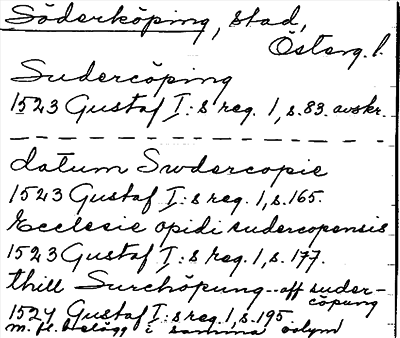 Söderköping, stad,
Österg. l.
Sudercöping
1523 Gustaf I:s reg. 1, s. 83. avskr.
datum Swdercopie
1523 Gustaf I:s reg. 1, s. 165.
Ecclesie opidi sudercopensis
1523 Gustaf I:s reg. 1, s. 177.
thill Surchöpung - aff suder-
cöpung
1524 Gustaf I:s reg. 1, s. 195.
m. fl. belägg i samma volym